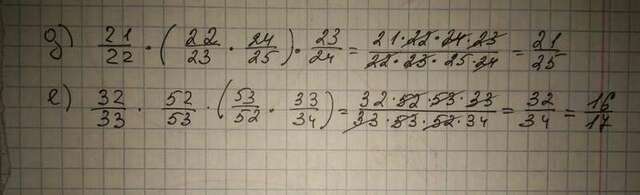 д) 21/22 · (22/23 · 24/25) · 23/24 = 21·22·24·23/22·23·25·24 = 21/25
е) 32/33 · 52/53 · (53/52 · 33/34) = 32·52·53·33/33·53·52·34 = 32/34 = 16/17